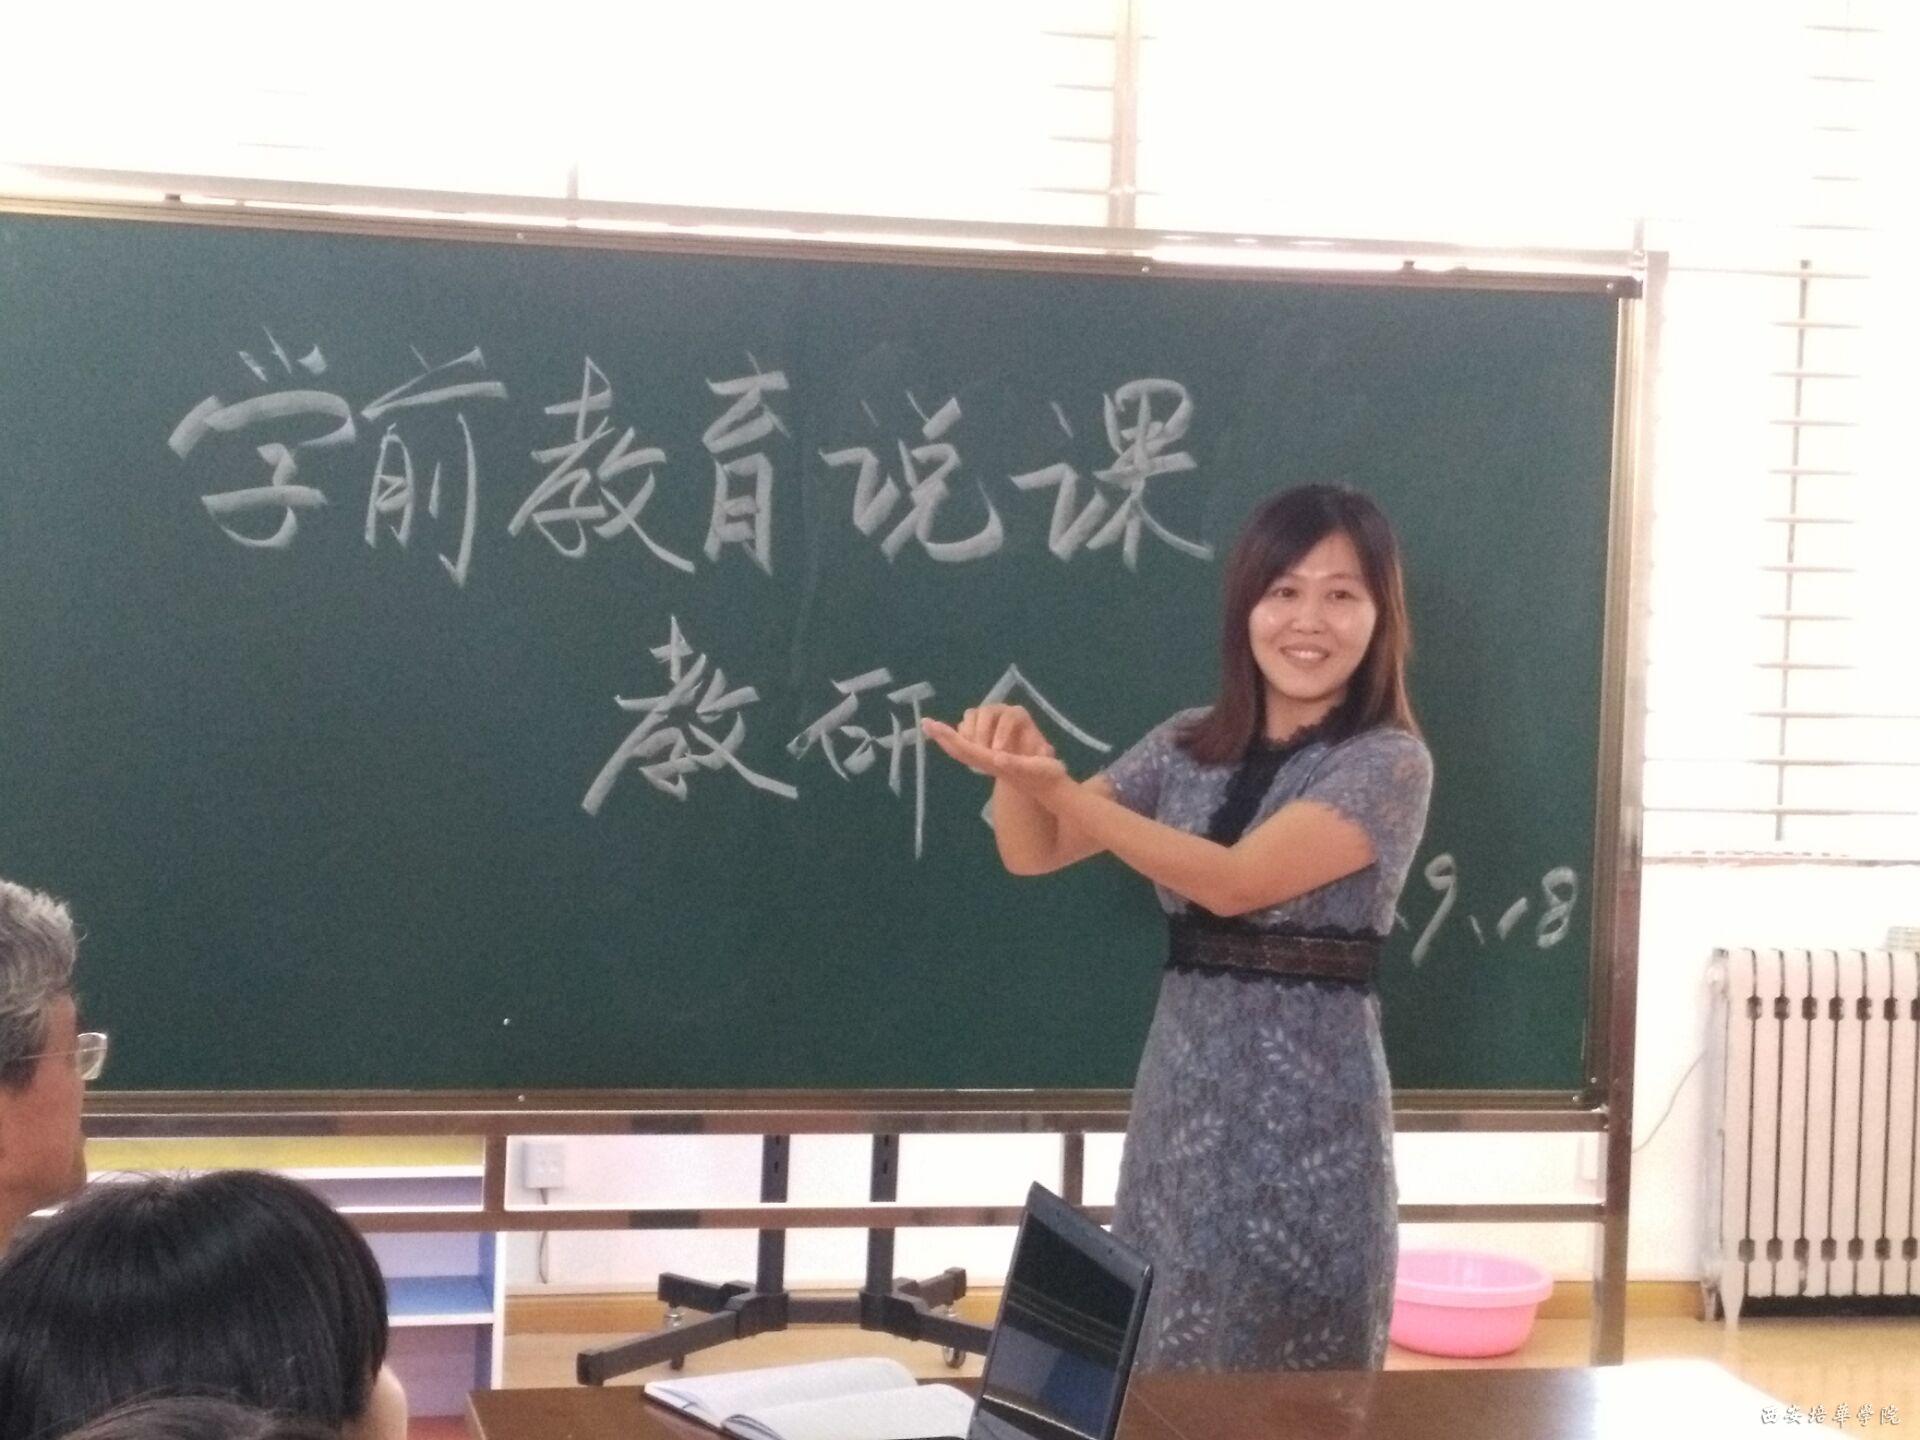 学前教育说课
教研会
9、18
西安培華学院